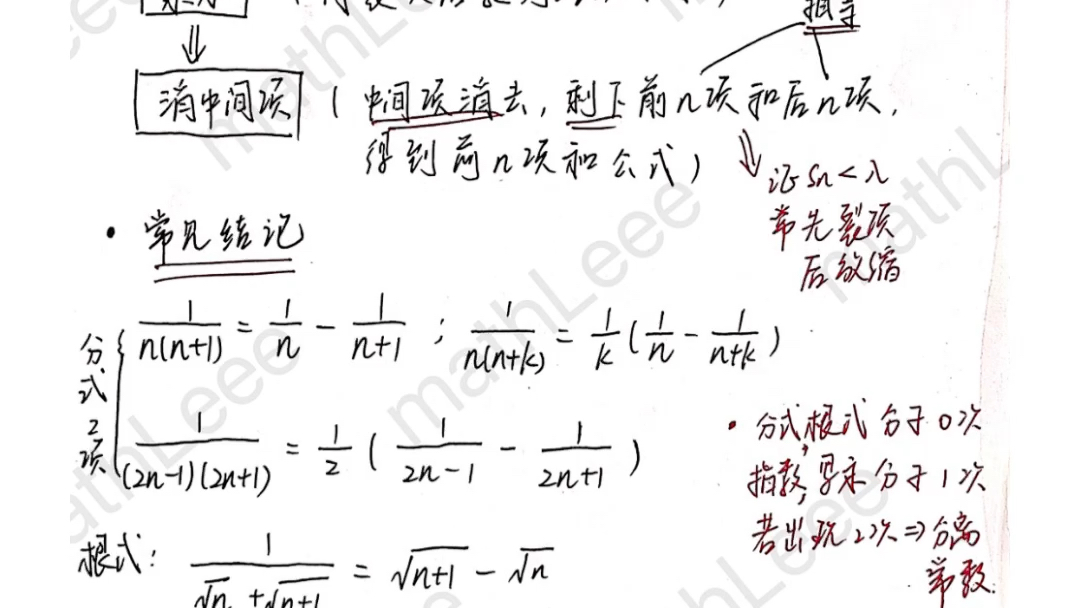 消中间项 (中间项消去, 剩下前n项和后n项,
得到前n项和公式)
证Sn<λ
常先裂项
后放缩
• 常见结论
分式2项 { 1/n(n+1) = 1/n - 1/n+1 ; 1/n(n+k) = 1/k (1/n - 1/n+k)
1/(2n-1)(2n+1) = 1/2 ( 1/2n-1 - 1/2n+1 )
• 分式,根式 分子0次
指数, 分子1次
若出现2次⇒分离
常数.
根式: 1/√n + √n+1 = √n+1 - √n
mathLeee